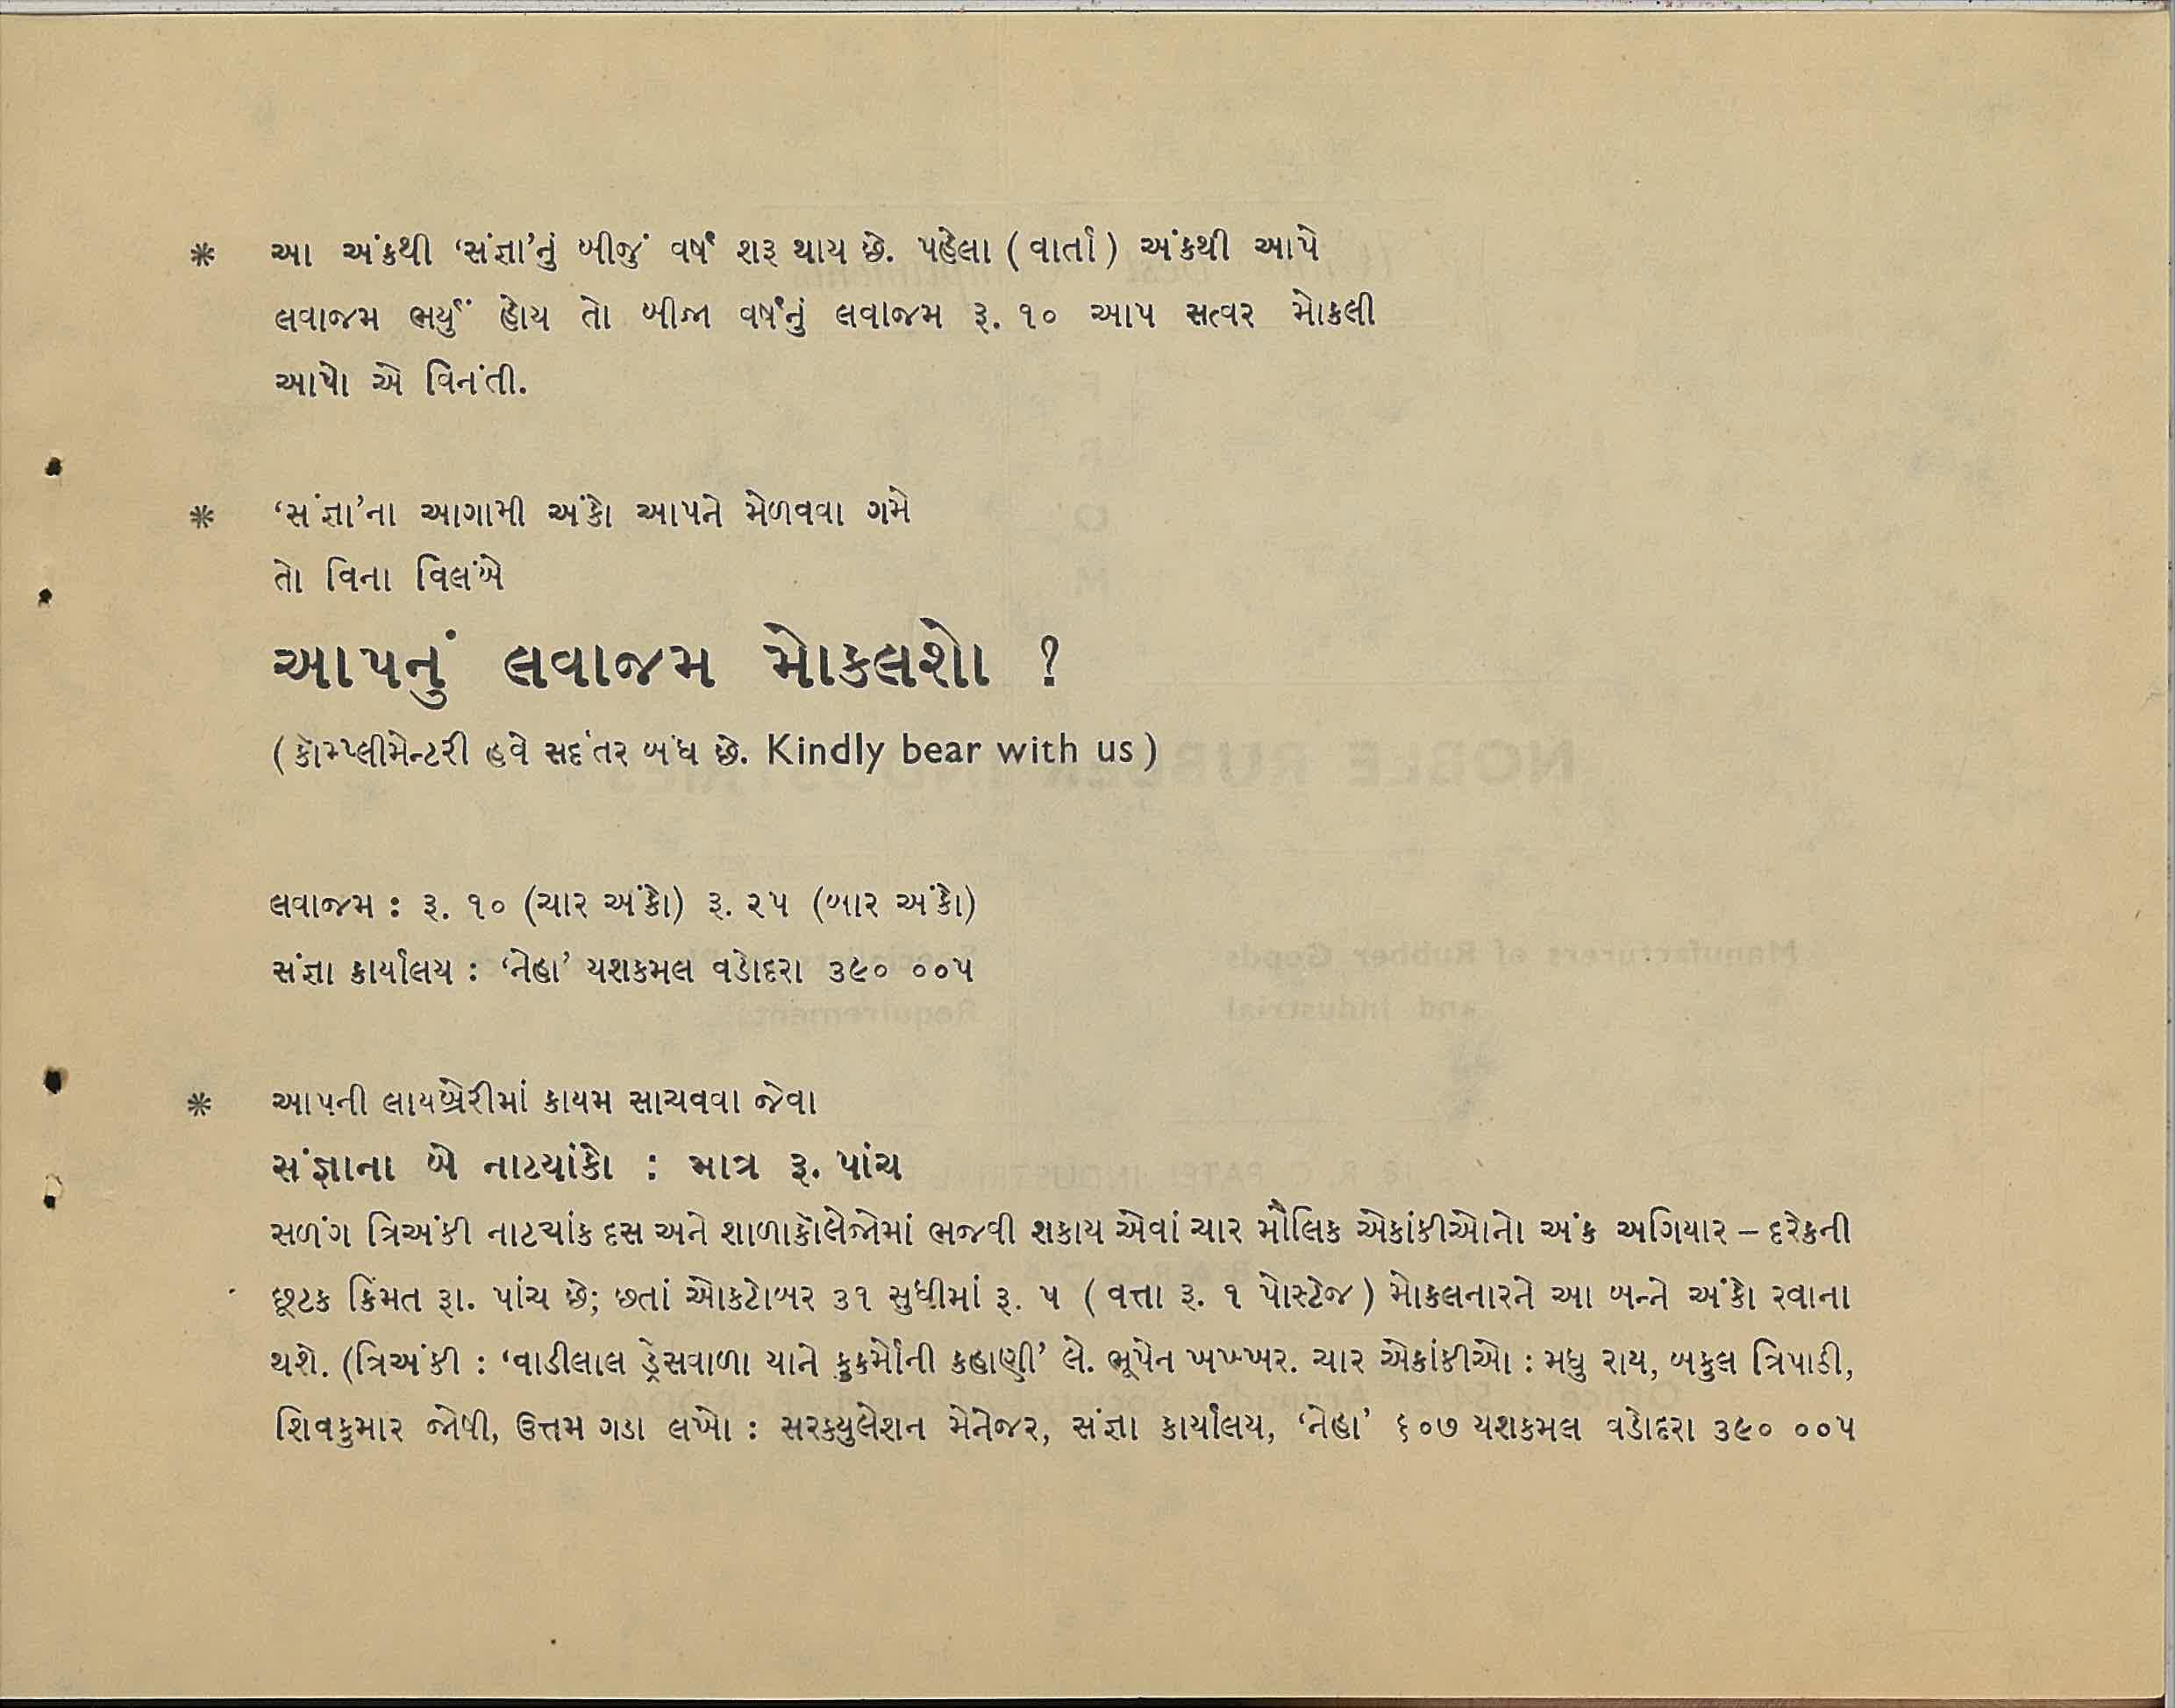 * આ અંકથી ‘સંજ્ઞા’નું બીજું વર્ષ શરૂ થાય છે. પહેલા ( વાર્તા ) અંકથી આપે
લવાજમ ભર્યું હોય તો બીજા વર્ષનું લવાજમ રૂ. ૧૦ આપ સત્વર મોકલી
આપો એ વિનંતી.
* ‘સંજ્ઞા’ના આગામી અંકો આપને મેળવવા ગમે
તો વિના વિલંબે
આપનું લવાજમ મોકલશો ?
( કૉમ્પ્લીમેન્ટરી હવે સદંતર બંધ છે. Kindly bear with us )
લવાજમ : રૂ. ૧૦ (ચાર અંકો) રૂ. ૨૫ (બાર અંકો)
સંજ્ઞા કાર્યાલય : ‘નેહા’ યશકમલ વડોદરા ૩૯૦ ૦૦૫
* આપની લાયબ્રેરીમાં કાયમ સાચવવા જેવા
સંજ્ઞાના બે નાટ્યાંકો : માત્ર રૂ. પાંચ
સળંગ ત્રિઅંકી નાટ્યાંક દસ અને શાળાકૉલેજોમાં ભજવી શકાય એવાં ચાર મૌલિક એકાંકીઓનો અંક અગિયાર – દરેકની
છૂટક કિંમત રૂા. પાંચ છે; છતાં ઓકટોબર ૩૧ સુધીમાં રૂ. ૫ ( વત્તા રૂ. ૧ પોસ્ટેજ ) મોકલનારને આ બન્ને અંકો રવાના
થશે. (ત્રિઅંકી : ‘વાડીલાલ ડ્રેસવાળા યાને કુકર્મોની કહાણી’ લે. ભૂપેન ખખ્ખર. ચાર એકાંકીઓ : મધુ રાય, બકુલ ત્રિપાઠી,
શિવકુમાર જોષી, ઉત્તમ ગડા લખો : સરક્યુલેશન મેનેજર, સંજ્ઞા કાર્યાલય, ‘નેહા’ ૬૦૭ યશકમલ વડોદરા ૩૯૦ ૦૦૫